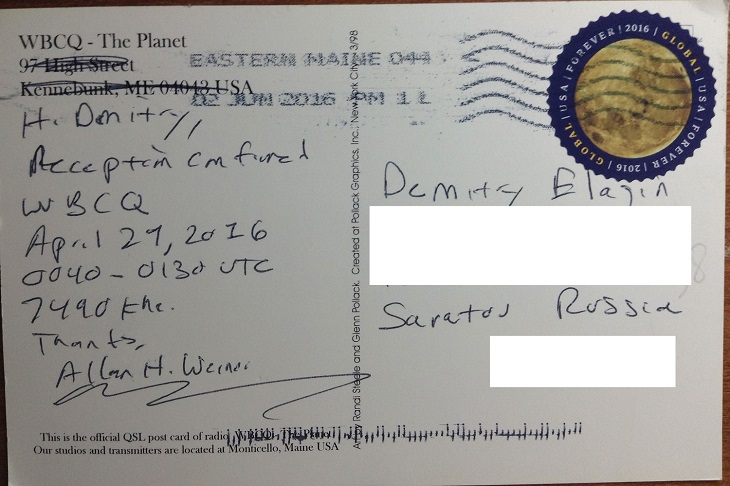 WBCQ - The Planet
97 High Street
Kennebunk, ME 04043 USA
EASTERN MAINE 044
02 JUN 2016 PM 1 L
H. Demitry,
Reception confirmed
WBCQ
April 29, 2016
0040 - 0130 UTC
7490 Khz.
Thanks,
Allan H. Weiner
This is the official QSL post card of radio WBCQ - The Planet
Our studios and transmitters are located at Monticello, Maine USA
Art by Randi Steele and Glenn Pollack. Created at Pollack Graphics, Inc., New York City 3/98
GLOBAL | USA | FOREVER | 2016 | GLOBAL | USA | FOREVER | 2016 |
Demitry Elagin
Saratov Russia